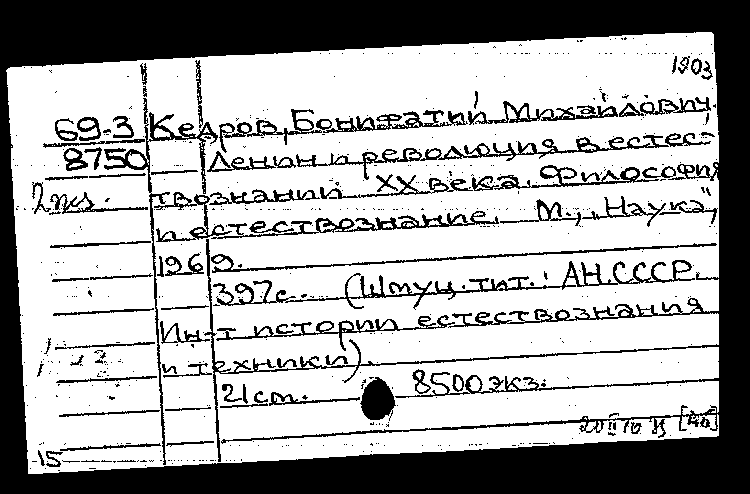 1903
69-3 Кедров, Бонифатий Михайлович.
8750 Ленин и революция в естес-
2 экз. твознании XX века. Философия
и естествознание. М., „Наука",
1969.
397 с. (Шмуц. тит.: АН.СССР.
Ин-т истории естествознания
и техники).
21 cm. 8500 экз.
15